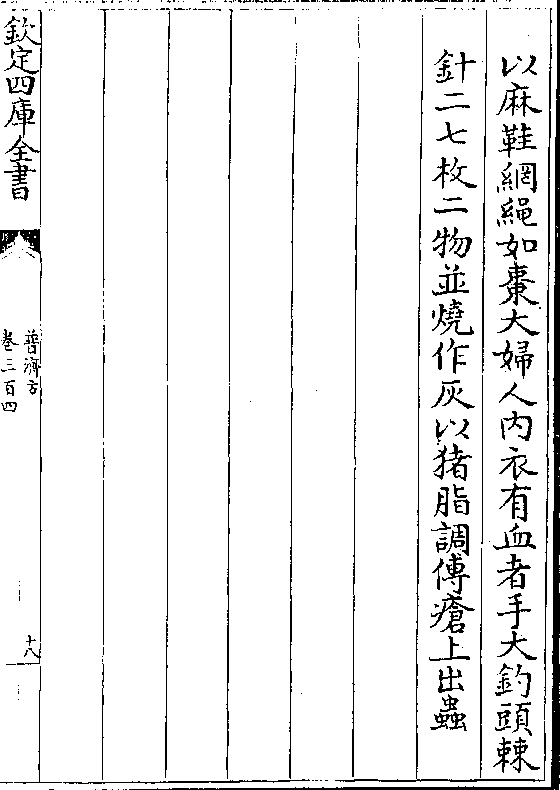 以麻鞋網繩如棗大婦人内衣有血者手大釣頭棘
針二七枚二物並燒作灰以猪脂調傅瘡上出蟲
欽定四庫全書
普濟方
卷三百四
十八